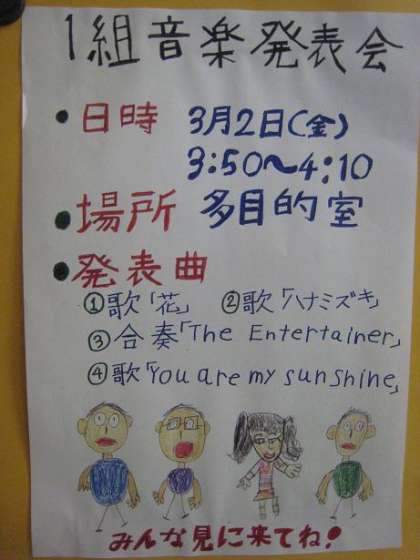 1組音楽発表会
・日時 3月2日(金)
3:50〜4:10
・場所 多目的室
・発表曲
①歌「花」 ②歌「ハナミズキ」
③合奏「The Entertainer」
④歌「You are my sunshine」
みんな見に来てね!